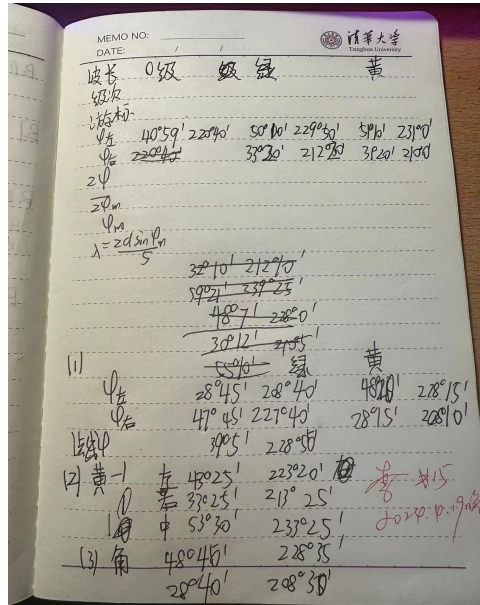 MEMO NO:
清华大学
Tsinghua University
DATE: / /
波长 0级 绿 黄
级次
游标
φ左 40°59' 220°40' 50°10' 229°50' 51°10' 231°0'
φ右 33°20' 212°20' 3120' 2100
2φ
2φm
φm
λ=2dsinφm/5
32°10' 212°10'
59°21' 239°25'
48°7' 228°0'
30°12'
55°10' 绿 黄
(1)
φ左 28°45' 208°40' 48°20' 228°15'
φ右 47°45' 227°40' 28°15' 208°10'
φ 39°5' 228°50'
(2) 黄-1 左 43°25' 223°20'
右 33°25' 213°25'
中 53°30' 233°25'
(3) 角 48°40' 228°35'
28°40' 208°30'
#15